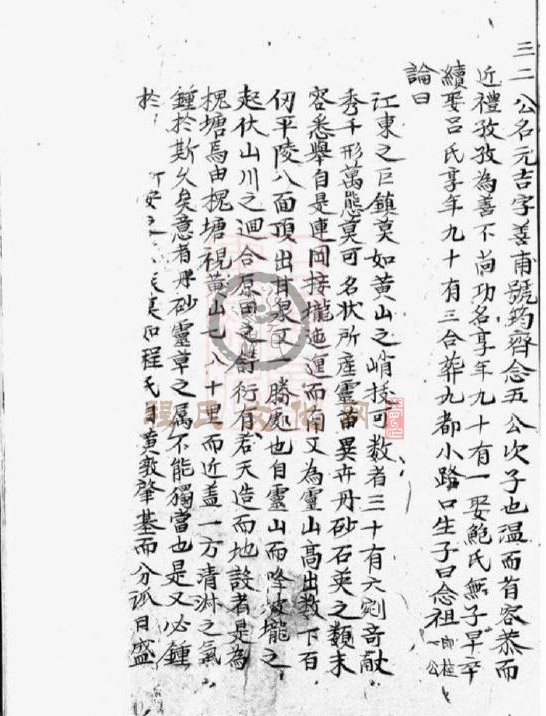 三二公名元吉字善甫號筠齊念五公次子也溫而有容恭而
近禮孜孜為善不尚功名享年九十有一娶鮑氏無子早卒
續娶呂氏享年九十有三合葬九都小路口生子曰念祖
論曰
江東之巨鎮莫如黃山之峭拔可數者三十有六剜奇獻
秀千形萬態莫可名狀所産靈苗異卉丹砂石英之類未
容悉舉自是連岡接壠迤逗而南又為靈山高出數千百
仞平陵八面頂出甘泉又一勝處也自靈山而坡壠之
起伏山川之迴合原田之行有若天造而地設者是為
槐塘焉由槐塘視黃山七八十里而近盖一方清淋之氣
鍾於斯久矣意者丹砂靈草之属不能獨當也是又必鍾
於安莫如程氏黃墩肇基而分派日盛
程氏文化网